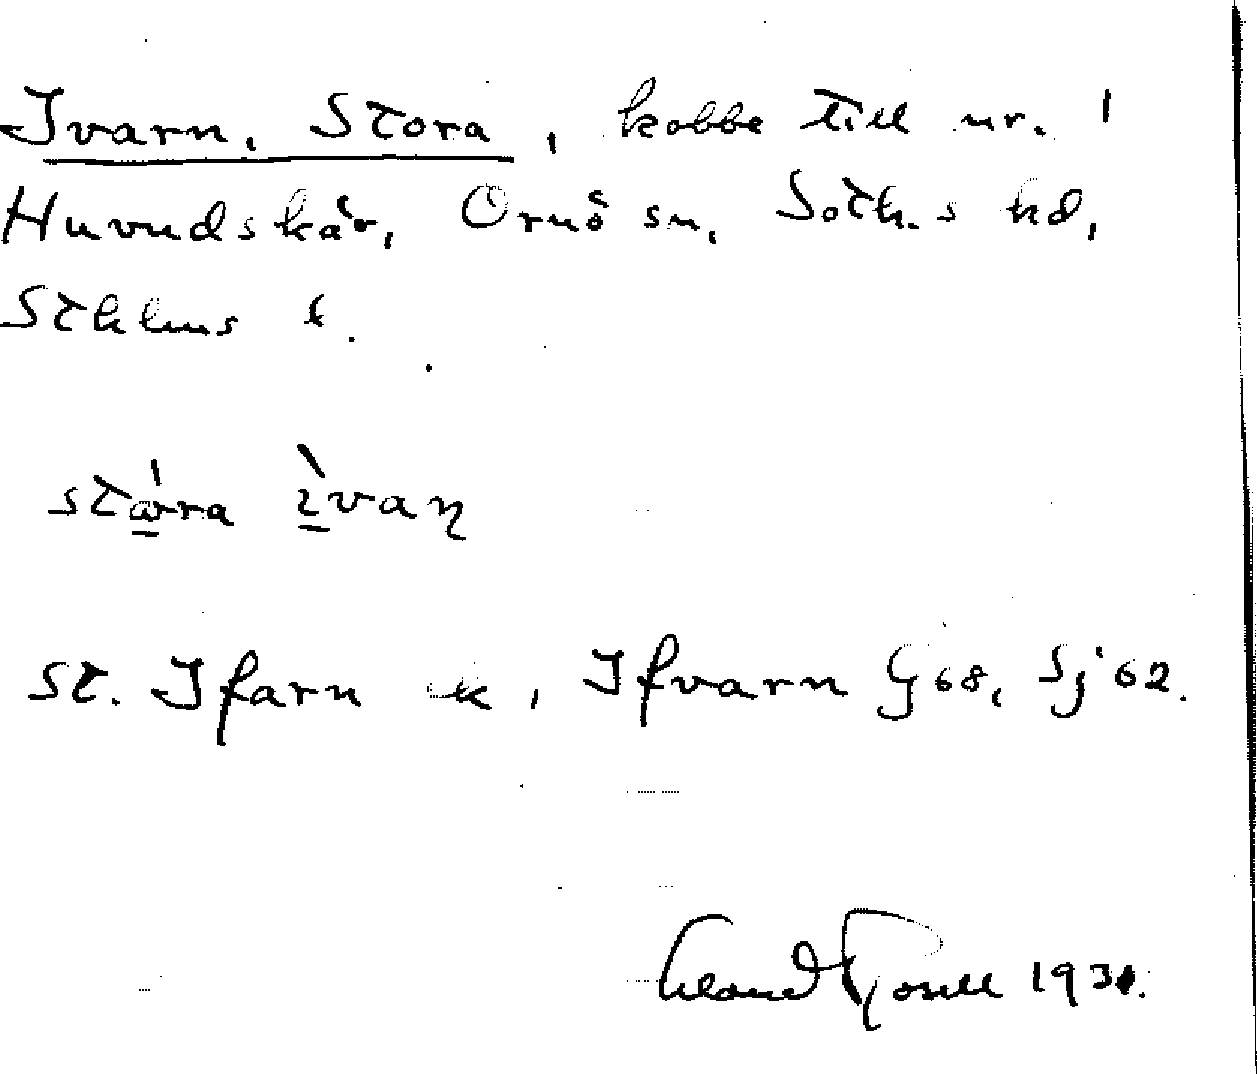 Ivarn, Stora, kobbe till nr. 1
Huvudskär, Ornö sn, Soth.s hd,
Sthlms l.
stå̱ra ì̱vaɳ
St. Ifarn k, Ifvarn G 68, Sj 62.
Erland Rosell 193